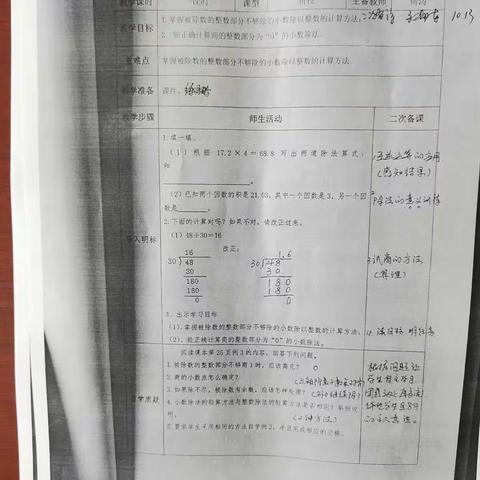 教学课时
课时
课型
新授
主备教师
教学目标
1.掌握被除数的整数部分不够除的小数除以整数的计算方法。
2.能正确计算商的整数部分为“0”的小数除法。
二次备课
10.13
重难点
掌握被除数的整数部分不够除的小数除以整数的计算方法
教学准备
课件。
教学步骤
师生活动
二次备课
导入明标
1.填一填。
(1)根据 17.2×4=68.8 写出两道除法算式:
和
(2)已知两个因数的积是21.03,其中一个因数是3,另一个因
数是
2.下面的计算对吗?如果不对,请改正过来。
(1)48÷30=16
改正:
16
30 48
30
180
180
0
1.6
30 48
30
180
180
0
(感知结果)
3.试商的方法
(算理)
3.出示学习目标
(1).掌握被除数的整数部分不够除的小数除以整数的计算方法;
(2).能正确计算商的整数部分为“0”的小数除法。
学质疑
阅读课本第25页例3的内容,回答下列问题。
1.被除数的整数部分不够商1时,应该商几? 0
2.商的小数点怎么确定?
3.如果除不尽,被除数有余数,应该怎样处理?
4.小数除法的验算方法与整数除法的验算方法是否相同?举例说
明。
5.要求学生采用相同的方法自学例2,并且完成相应的空格。